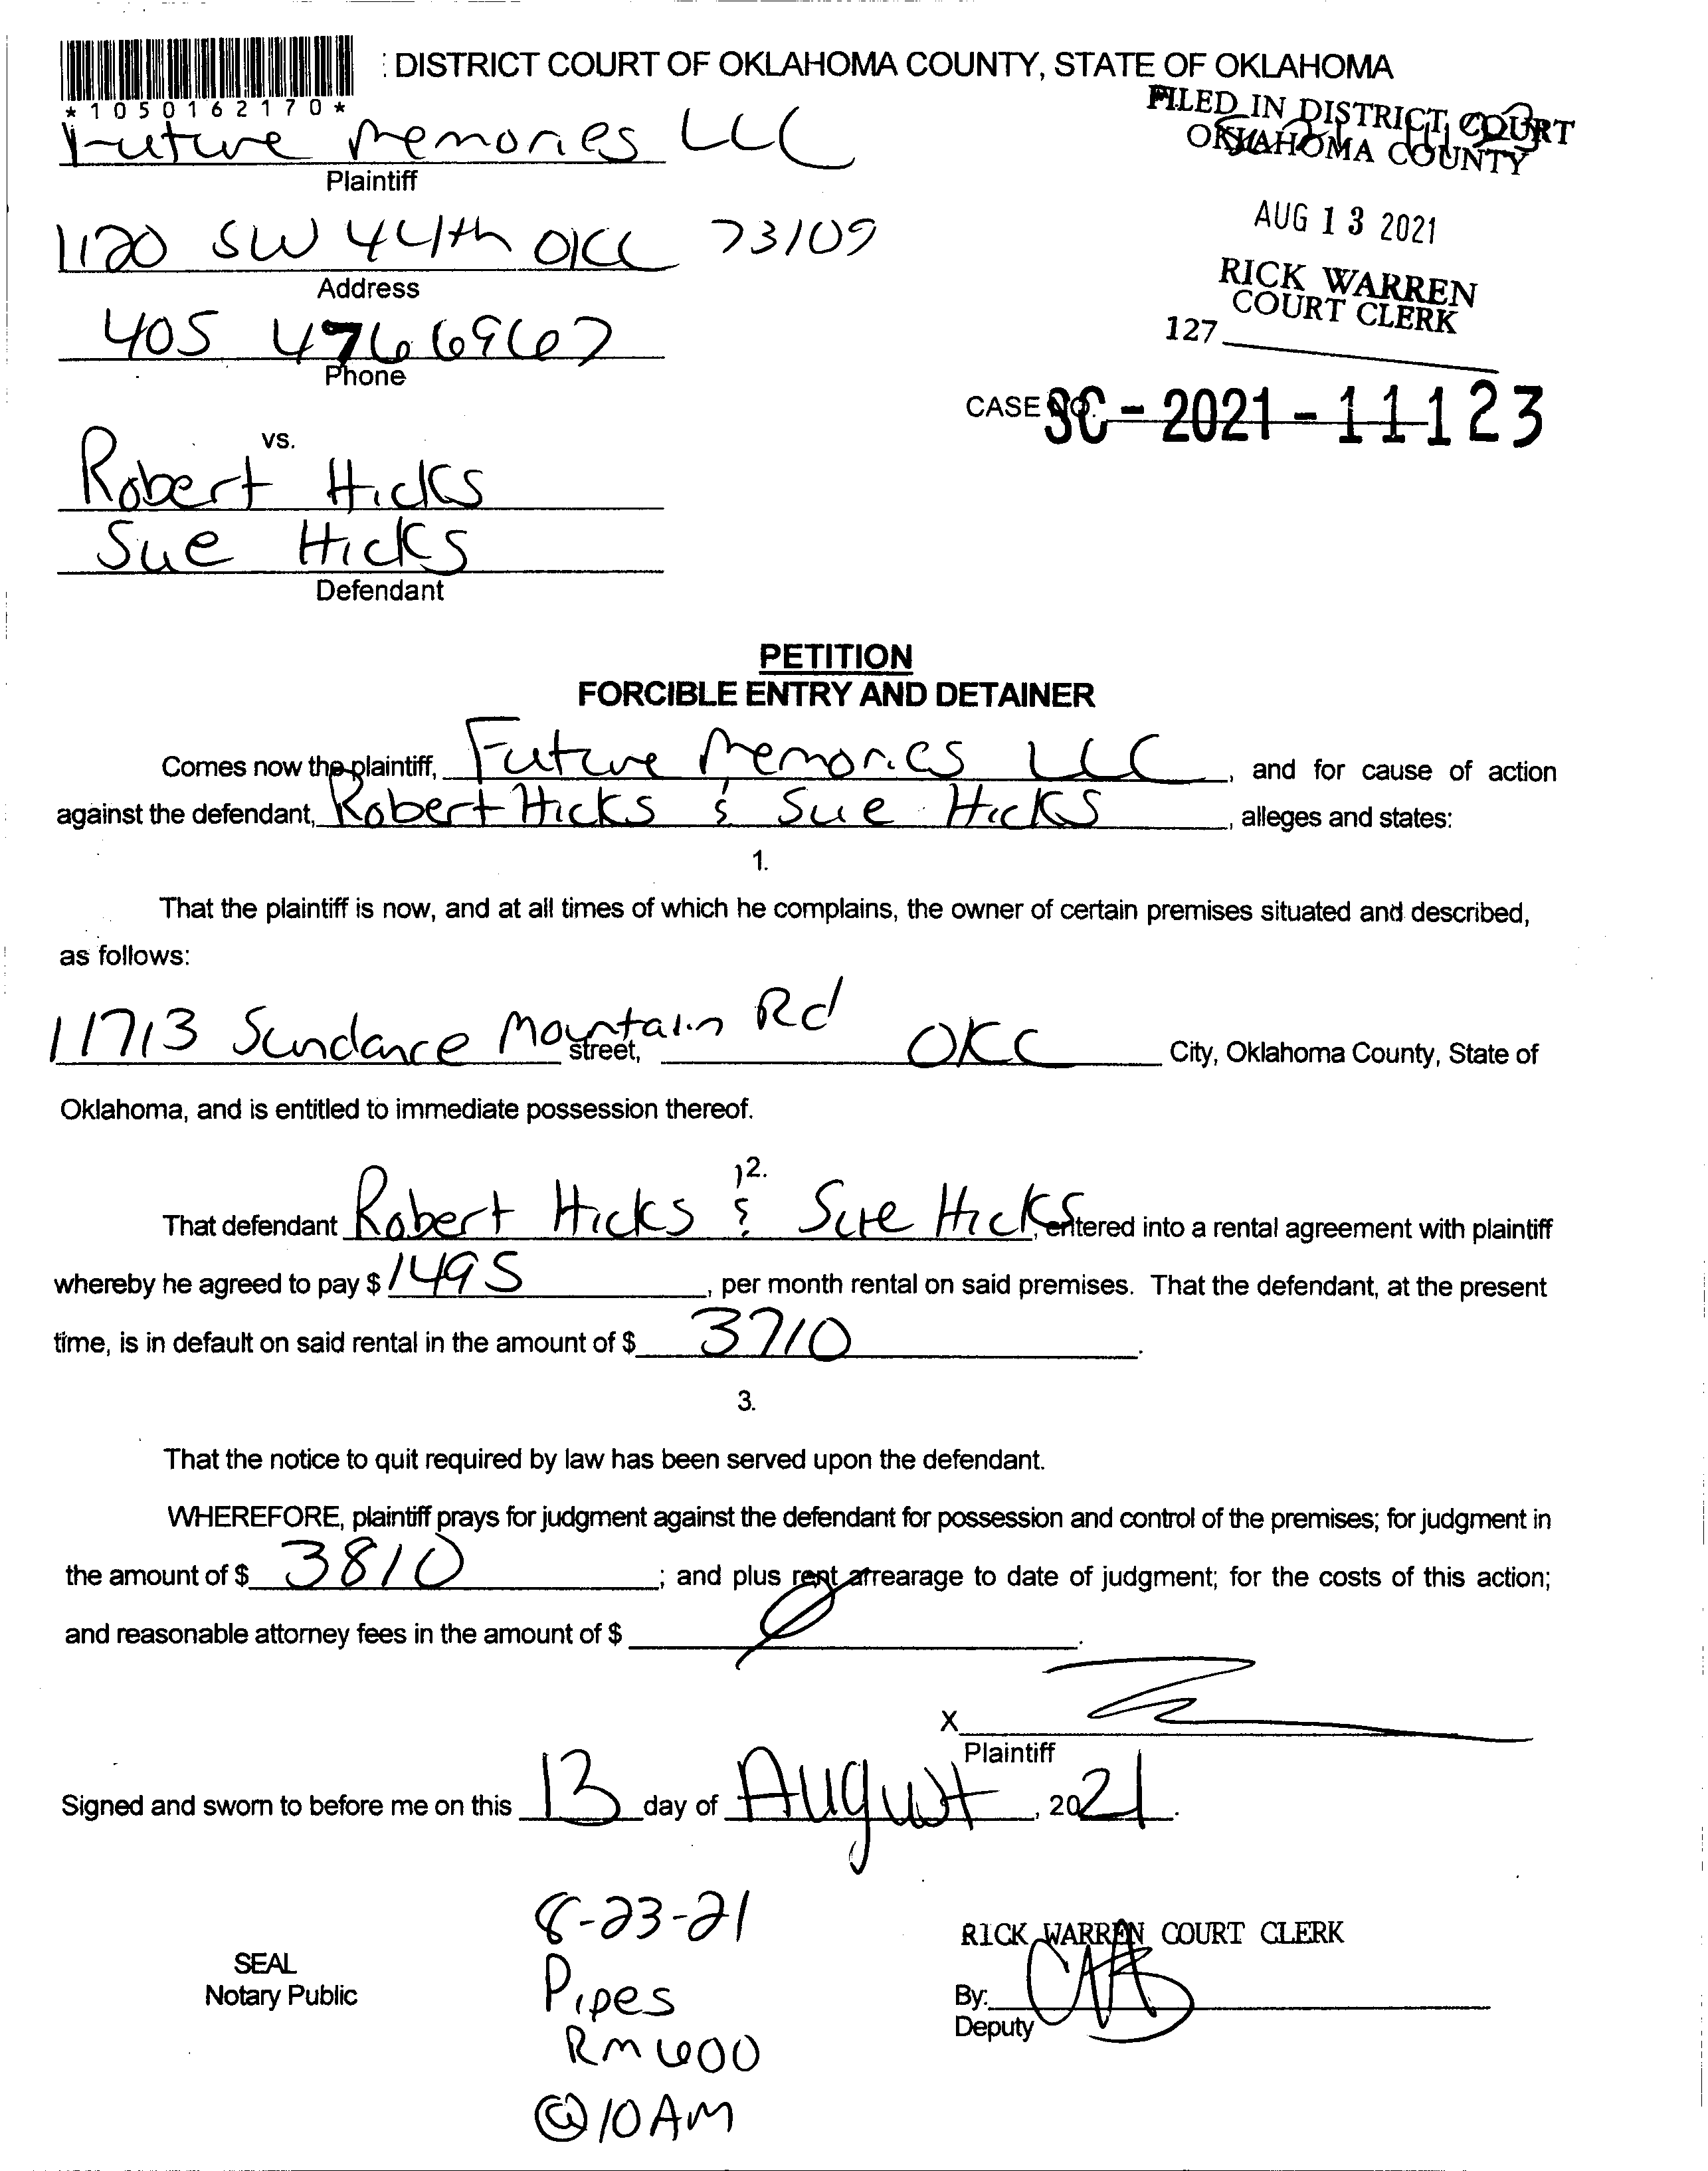 : DISTRICT COURT OF OKLAHOMA COUNTY, STATE OF OKLAHOMA
*1050162170*
FILED IN DISTRICT COURT
OKLAHOMA COUNTY
Future Memories LLC
Plaintiff
AUG 13 2021
1120 SW 44th OKC 73109
Address
RICK WARREN
COURT CLERK
127
405 476 6967
Phone
CASE NO. SC-2021-11123
vs.
Robert Hicks
Sue Hicks
Defendant
PETITION
FORCIBLE ENTRY AND DETAINER
Comes now the plaintiff, Future Memories LLC, and for cause of action
against the defendant, Robert Hicks & Sue Hicks, alleges and states:
1.
That the plaintiff is now, and at all times of which he complains, the owner of certain premises situated and described,
as follows:
11713 Sundance Mountain Rd street, OKC City, Oklahoma County, State of
Oklahoma, and is entitled to immediate possession thereof.
2.
That defendant Robert Hicks & Sue Hicks, entered into a rental agreement with plaintiff
whereby he agreed to pay $ 1495, per month rental on said premises. That the defendant, at the present
time, is in default on said rental in the amount of $ 3710.
3.
That the notice to quit required by law has been served upon the defendant.
WHEREFORE, plaintiff prays for judgment against the defendant for possession and control of the premises; for judgment in
the amount of $ 3810; and plus rent arrearage to date of judgment; for the costs of this action;
and reasonable attorney fees in the amount of $ .
X
Plaintiff
Signed and sworn to before me on this 13 day of August, 2021.
8-23-21
RICK WARREN COURT CLERK
SEAL
Notary Public
Pipes
By:
Deputy
Rm 600
@10AM